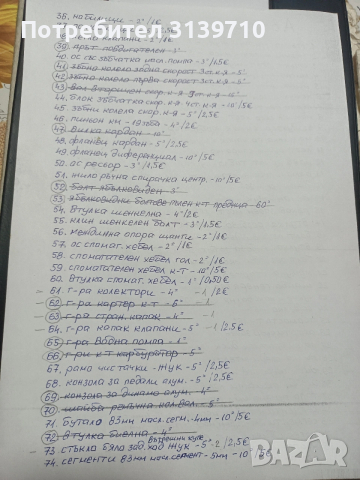 Потребител 3139710
36. кобилици - 2°/1€
38. клапани - 2°/1€
39. прът повдигателен - 3°
40. ос със зъбчатка масл. помпа - 3°/1.5€
41. зъбно колело задна скорост 3ст. к-я - 5°
42. зъбно колело първа скорост 3ст. к-я - 5°
43. вал вторичен скор. к-я 3ст. к-я - 10°
44. блок зъбчатка скор. к-я 4ст. к-я - 10°/5€
45. зъбни колела скор. к-я - 5°/2,5€
46. пиньон км - 19 зъба - 4°/2€
47. вилка кардан - 10°
48. фланец кардан - 5°/2,5€
49. фланец диференциал - 10°/5€
50. ос ресьор - 3°/1,5€
51. жило ръчна спирачка центр. - 10°/5€
52. болт ябълковиден - 3°
53. ябълковидни болтове предница - 60°
54. втулка шенкелна - 4°/2€
55. клин шенкелен болт - 3°/1,5€
56. междинна опора щанги - 2°/1€
57. ос спомаг. хебел - 2°/1€
58. спомагателен хебел гол - 2°/1€
59. спомагателен хебел к-т - 10°/5€
60. втулка спомаг. хебел - 1°/0,50€
61. г-ра колектори - 4° - 1/2€
62. г-ра картер к-т - 6° - 1
63. г-ра стран. капак - 4°
64. г-ра капак клапани - 5° - 1/2.5€
65. г-ра водна помпа - 1°
66. г-ри к-т карбуратор - 5°
67. рамо чистачки - жук - 5°/2,5€
68. конзола за педали алум. - 5°/2,5€
69. конзола за динамо алум. - 4°
70. шайба колян. вал - 5°
71. бутало B3мм масл. сегм. - 4мм - 10°/5€
72. втулка биелна - 4°
73. стъкла бяло зад. ход жук - 5° 2/2,5€
74. сегменти B3мм масл. сегмент - 5мм - 10°/5€
bazar